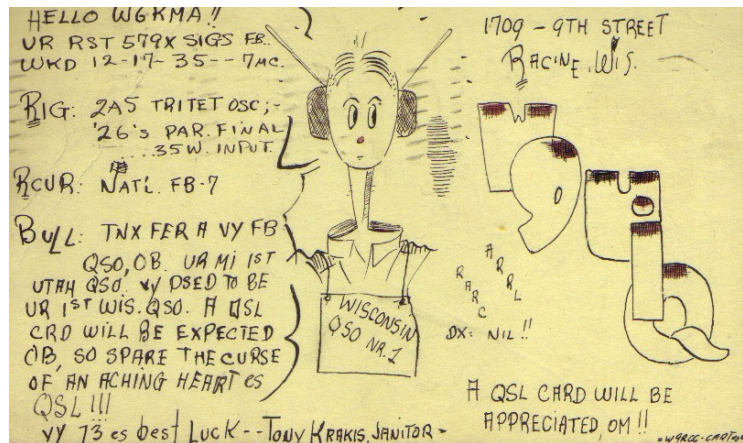 HELLO W6KMA!!
UR RST 579X SIGS FB.
WKD 12-17-35--7MC.
RIG: 2A5 TRITET OSC;-
'26's PAR. FINAL
....35W. INPUT.
RCUR: NAT'L. FB-7
BULL: TNX FER A VY FB
QSO, OB. UR MI 1ST
UTAH QSO. VY PSED TO BE
UR 1ST WIS. QSO. A QSL
CRD WILL BE EXPECTED
OB, SO SPARE THE CURSE
OF AN ACHING HEART es
QSL!!!
VY 73 es best LUCK--TONY KRAKIS, JANITOR-
WISCONSIN
QSO NR. 1
1709 - 9TH STREET
RACINE, WIS.
W9RCQ
ARRL
RARC
DX: NIL!!
A QSL CARD WILL BE
APPRECIATED OM!!